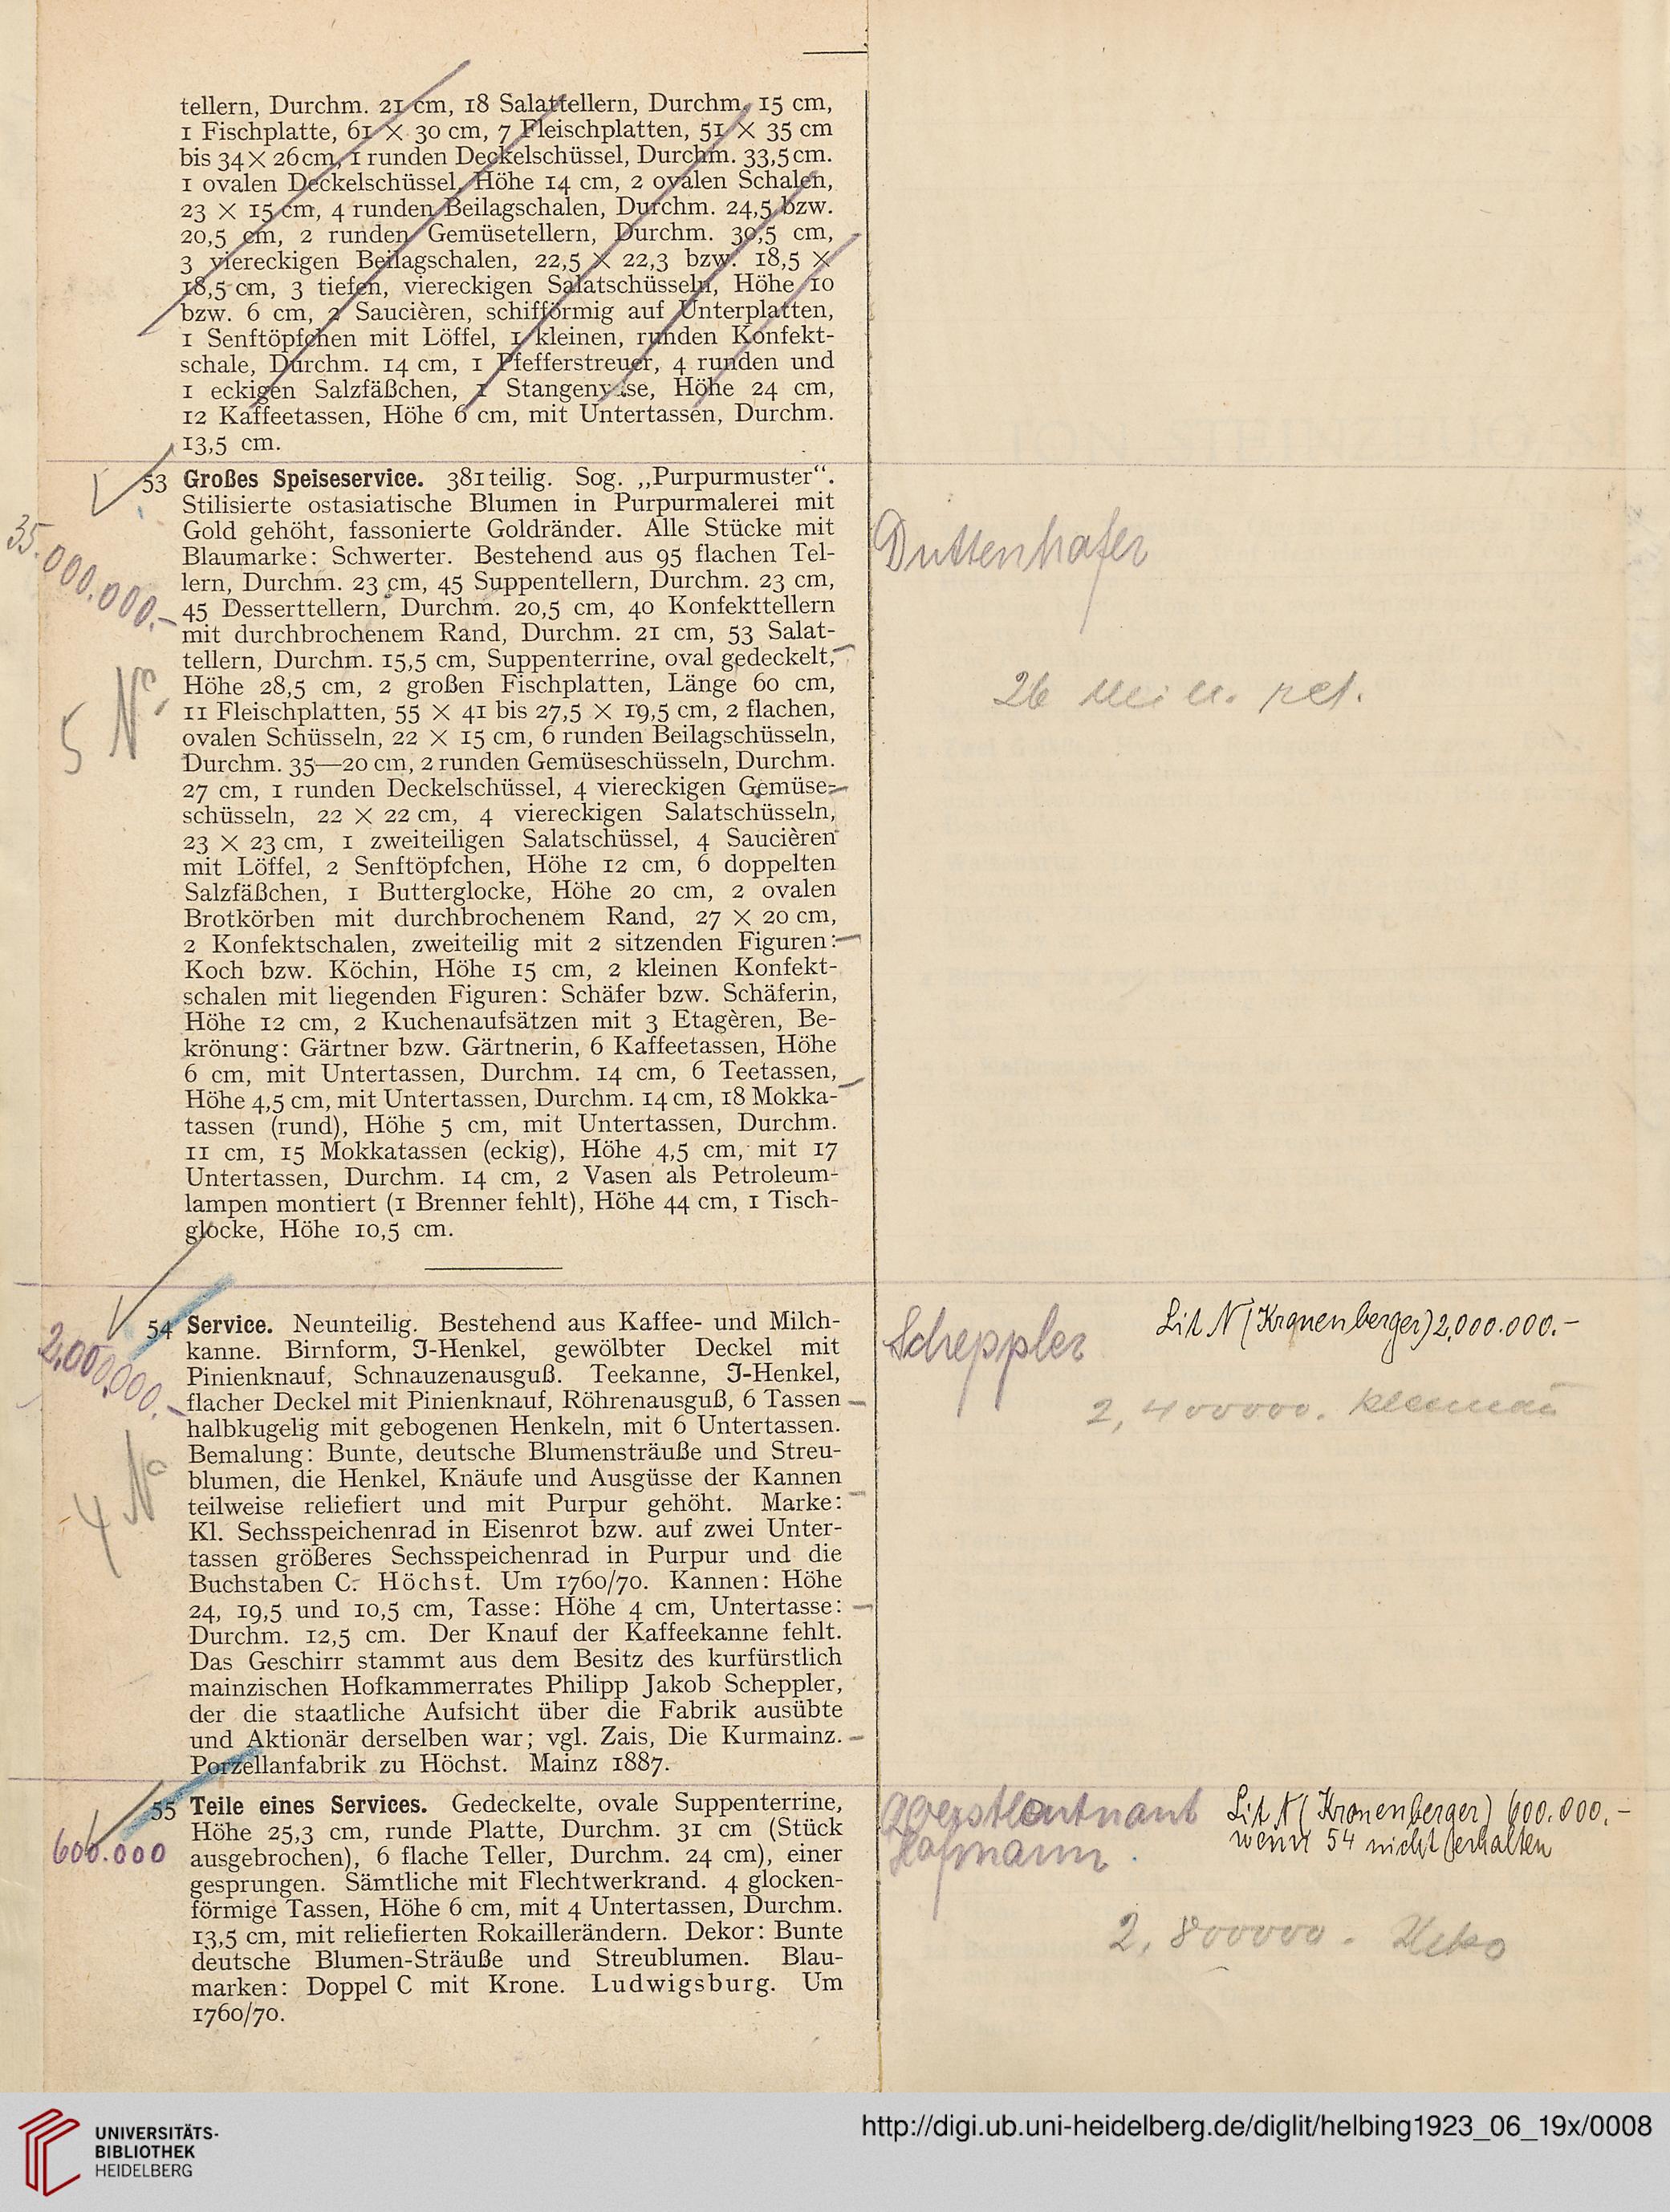 tellern, Durchm. 21 cm, 18 Salattellern, Durchm. 15 cm,
1 Fischplatte, 61 × 30 cm, 7 Fleischplatten, 51 × 35 cm
bis 34 × 26 cm, 1 runden Deckelschüssel, Durchm. 33,5 cm.
1 ovalen Deckelschüssel, Höhe 14 cm, 2 ovalen Schalen,
23 × 15 cm, 4 runden Beilagschalen, Durchm. 24,5 bzw.
20,5 cm, 2 runden Gemüsetellern, Durchm. 30,5 cm,
3 viereckigen Beilagschalen, 22,5 × 22,3 bzw. 18,5 ×
18,5 cm, 3 tiefen, viereckigen Salatschüsseln, Höhe 10
bzw. 6 cm, 2 Saucièren, schifförmig auf Unterplatten,
1 Senftöpfchen mit Löffel, 1 kleinen, runden Konfekt-
schale, Durchm. 14 cm, 1 Pfefferstreuer, 4 runden und
1 eckigen Salzfäßchen, 1 Stangenvase, Höhe 24 cm,
12 Kaffeetassen, Höhe 6 cm, mit Untertassen, Durchm.
13,5 cm.
53 Großes Speiseservice. 381teilig. Sog. „Purpurmuster“.
Stilisierte ostasiatische Blumen in Purpurmalerei mit
Gold gehöht, fassonierte Goldränder. Alle Stücke mit
Blaumarke: Schwerter. Bestehend aus 95 flachen Tel-
lern, Durchm. 23 cm, 45 Suppentellern, Durchm. 23 cm,
45 Desserttellern, Durchm. 20,5 cm, 40 Konfekttellern
mit durchbrochenem Rand, Durchm. 21 cm, 53 Salat-
tellern, Durchm. 15,5 cm, Suppenterrine, oval gedeckelt,
Höhe 28,5 cm, 2 großen Fischplatten, Länge 60 cm,
11 Fleischplatten, 55 × 41 bis 27,5 × 19,5 cm, 2 flachen,
ovalen Schüsseln, 22 × 15 cm, 6 runden Beilagschüsseln,
Durchm. 35—20 cm, 2 runden Gemüseschüsseln, Durchm.
27 cm, 1 runden Deckelschüssel, 4 viereckigen Gemüse-
schüsseln, 22 × 22 cm, 4 viereckigen Salatschüsseln,
23 × 23 cm, 1 zweiteiligen Salatschüssel, 4 Saucièren
mit Löffel, 2 Senftöpfchen, Höhe 12 cm, 6 doppelten
Salzfäßchen, 1 Butterglocke, Höhe 20 cm, 2 ovalen
Brotkörben mit durchbrochenem Rand, 27 × 20 cm,
2 Konfektschalen, zweiteilig mit 2 sitzenden Figuren:
Koch bzw. Köchin, Höhe 15 cm, 2 kleinen Konfekt-
schalen mit liegenden Figuren: Schäfer bzw. Schäferin,
Höhe 12 cm, 2 Kuchenaufsätzen mit 3 Etagèren, Be-
krönung: Gärtner bzw. Gärtnerin, 6 Kaffeetassen, Höhe
6 cm, mit Untertassen, Durchm. 14 cm, 6 Teetassen,
Höhe 4,5 cm, mit Untertassen, Durchm. 14 cm, 18 Mokka-
tassen (rund), Höhe 5 cm, mit Untertassen, Durchm.
11 cm, 15 Mokkatassen (eckig), Höhe 4,5 cm, mit 17
Untertassen, Durchm. 14 cm, 2 Vasen als Petroleum-
lampen montiert (1 Brenner fehlt), Höhe 44 cm, 1 Tisch-
glocke, Höhe 10,5 cm.
35.000.000.-
5 No
Duttenhofer
26 Mill. ret.
54 Service. Neunteilig. Bestehend aus Kaffee- und Milch-
kanne. Birnform, J-Henkel, gewölbter Deckel mit
Pinienknauf, Schnauzenausguß. Teekanne, J-Henkel,
flacher Deckel mit Pinienknauf, Röhrenausguß, 6 Tassen
halbkugelig mit gebogenen Henkeln, mit 6 Untertassen.
Bemalung: Bunte, deutsche Blumensträuße und Streu-
blumen, die Henkel, Knäufe und Ausgüsse der Kannen
teilweise reliefiert und mit Purpur gehöht. Marke:
Kl. Sechsspeichenrad in Eisenrot bzw. auf zwei Unter-
tassen größeres Sechsspeichenrad in Purpur und die
Buchstaben C. Höchst. Um 1760/70. Kannen: Höhe
24, 19,5 und 10,5 cm, Tasse: Höhe 4 cm, Untertasse:
Durchm. 12,5 cm. Der Knauf der Kaffeekanne fehlt.
Das Geschirr stammt aus dem Besitz des kurfürstlich
mainzischen Hofkammerrates Philipp Jakob Scheppler,
der die staatliche Aufsicht über die Fabrik ausübte
und Aktionär derselben war; vgl. Zais, Die Kurmainz.
Porzellanfabrik zu Höchst. Mainz 1887.
2.000.000.-
4 No
Scheppler
Lit N (Kronenberger) 2.000.000.-
2,400000.
55 Teile eines Services. Gedeckelte, ovale Suppenterrine,
Höhe 25,3 cm, runde Platte, Durchm. 31 cm (Stück
ausgebrochen), 6 flache Teller, Durchm. 24 cm), einer
gesprungen. Sämtliche mit Flechtwerkrand. 4 glocken-
förmige Tassen, Höhe 6 cm, mit 4 Untertassen, Durchm.
13,5 cm, mit reliefierten Rokaillerändern. Dekor: Bunte
deutsche Blumen-Sträuße und Streublumen. Blau-
marken: Doppel C mit Krone. Ludwigsburg. Um
1760/70.
600.000
Oberstleutnant
Hofmann
Lit N (Kronenberger) 600.000.-
wenn 54 nicht erhalten
2,800000.
UNIVERSITÄTS-
BIBLIOTHEK
HEIDELBERG
http://digi.ub.uni-heidelberg.de/diglit/helbing1923_06_19x/0008